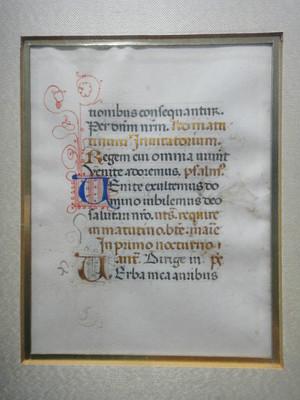 tionibus consequantur.
Per dnm nrm. Ad matu
tinum Inuitatorium.
Regem cui omnia uiuunt
Uenite adoremus. psalm9.
UEnite exultemus do
mino iubilemus deo
salutari nro. uts. require
in maturno. bte. maie
In primo nocturno.
añt. Dirige in ps
UErba mea auribus